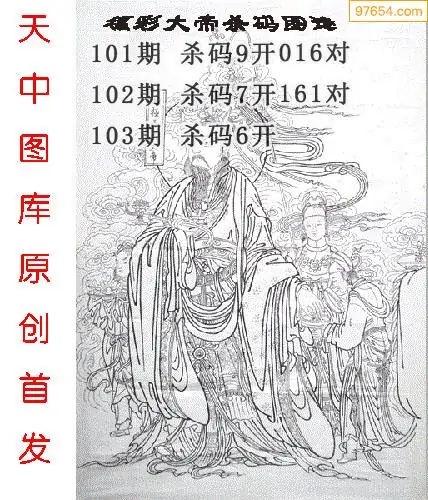 97654.com
福彩大帝杀码图迷
101期 杀码9开016对
102期 杀码7开161对
103期 杀码6开
天中图库原创首发